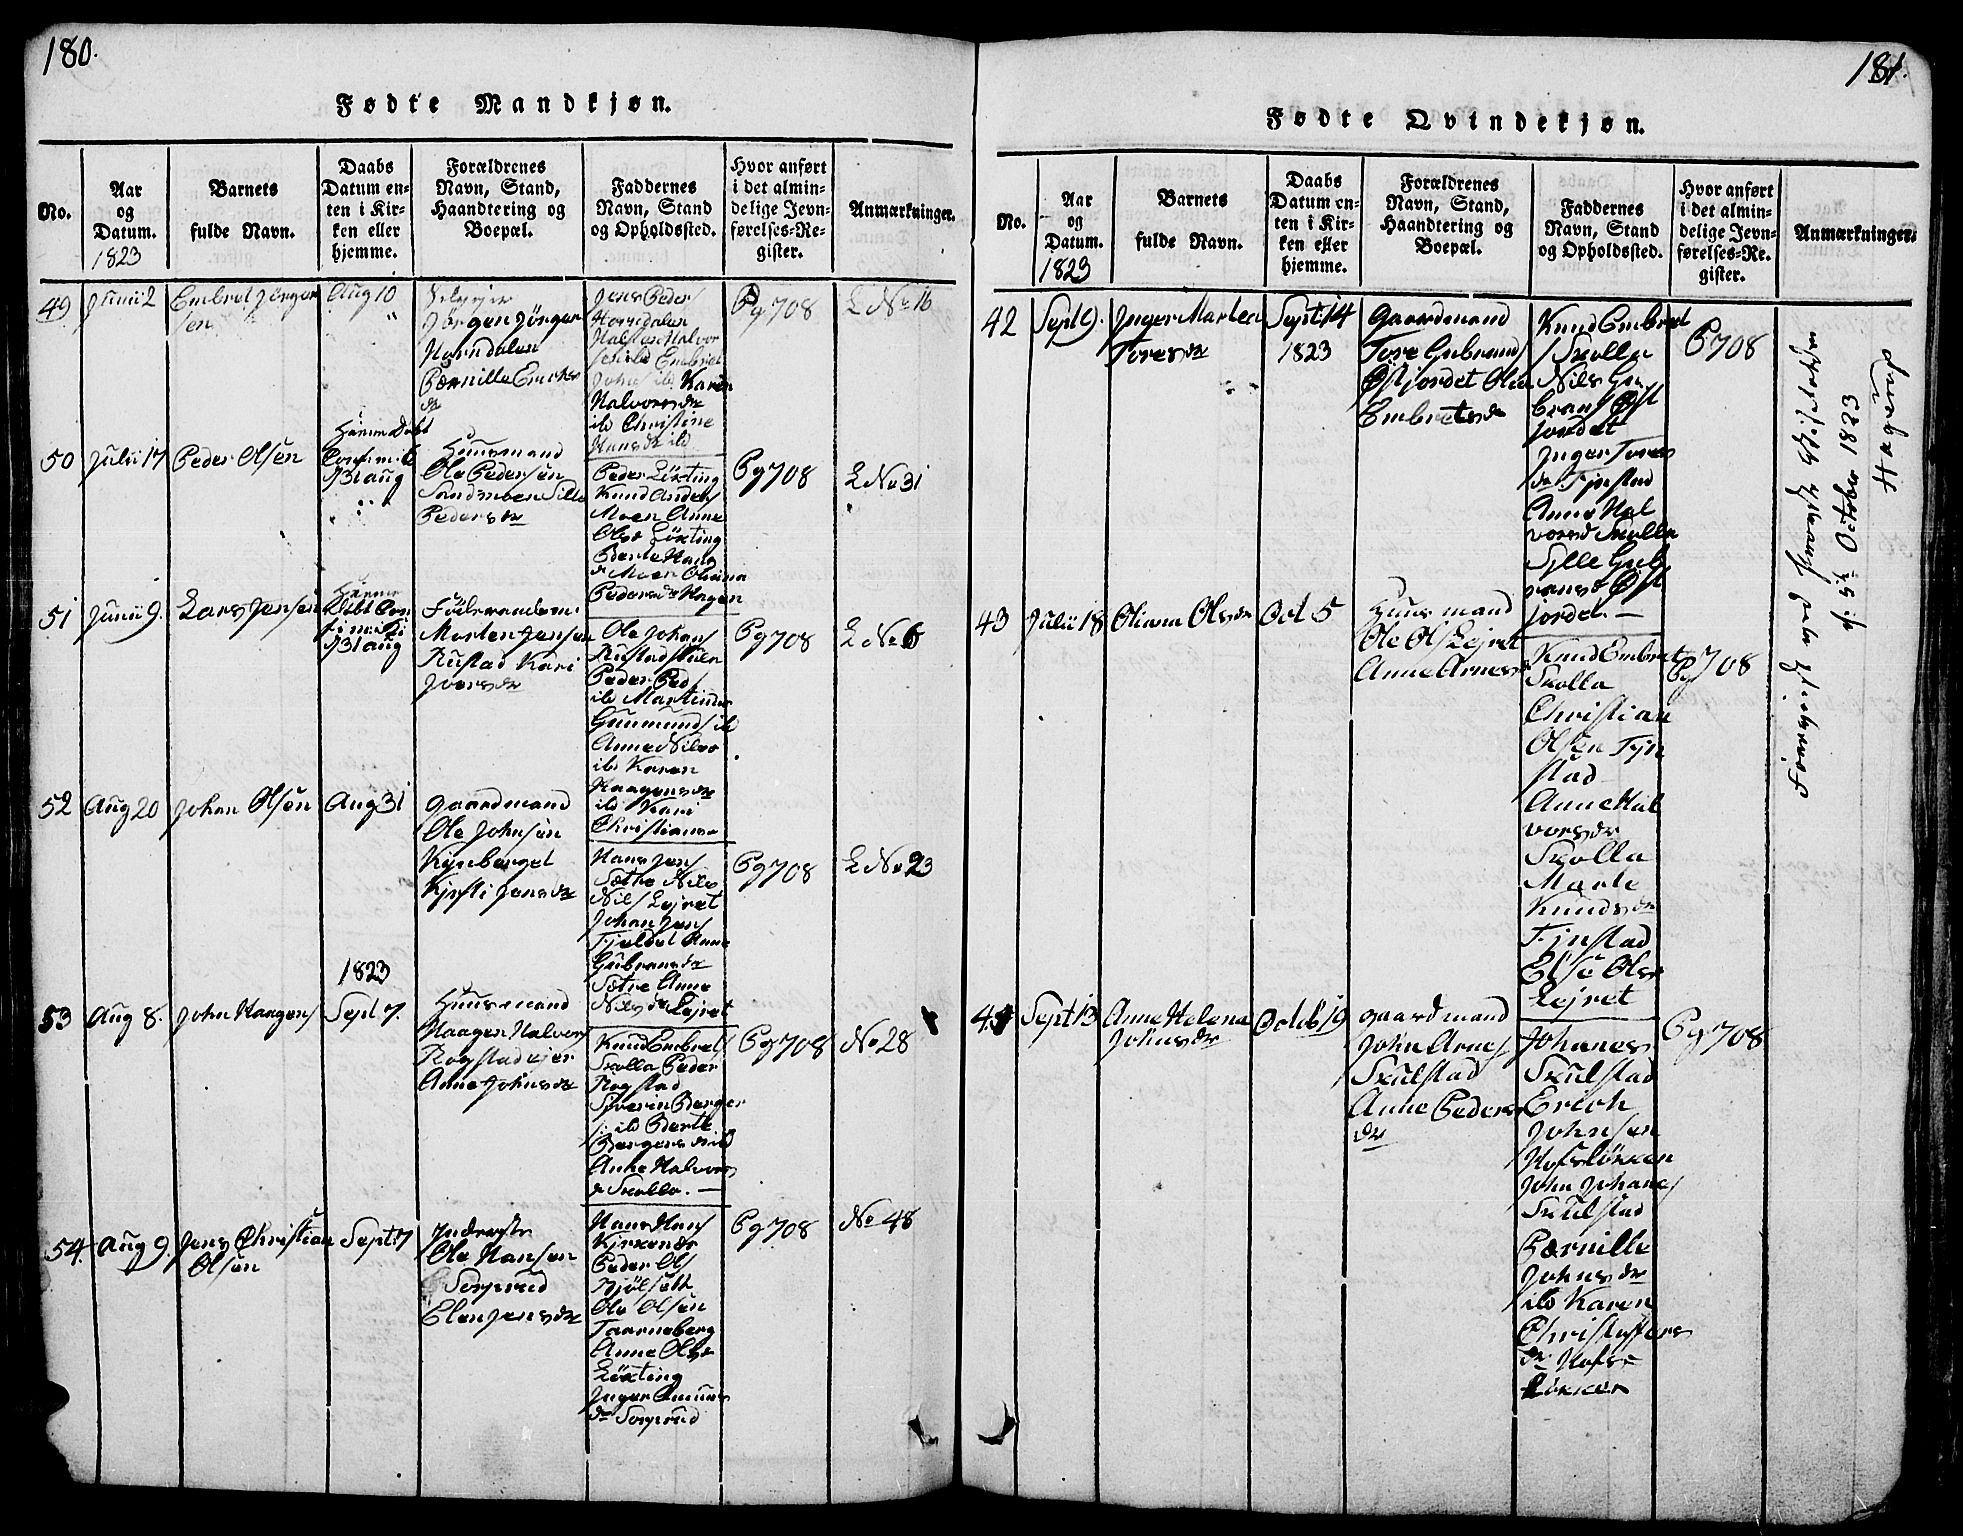 180.
Fødte Mandkjøn.
No.
Aar
og
Datum.
1823
Barnets
fulde Navn.
Daabs
Datum en-
ten i Kir-
ken eller
hjemme.
Forældrenes
Navn, Stand,
Haandtering og
Boepæl.
Faddernes
Navn, Stand
og Opholdssted.
Hvor anført
i det almin-
delige Jevn-
førelses-Re-
gister.
Anmærkninger.
49
Junii 2
Embret Jörgen
sen
Aug 10
Jörgen Jörgen
Horndalen
Pærnille Erichs
dr
Jens Peders
Horndalen
Halsten Halvor
Embret
John ild Karen
Halvorsdr
ild Christine
Hansdr ild
Pg 708
L No 16
50
Julii 17
Peder Olsen
Hjemedøbt
Confirmit
d 31 aug
Huusmand
Ole Pedersen
Sandmoen Sille
Pedersdr
Peder Löxting
Knud Anders
Moen Anne
Olsd Löxting
Berte Haag
dr Moen Oliana
Pedersdr Hagen
Pg 708
L No 31
51
Junii 9.
Lars Jensen
Hjemme
Døbt Con
firmeret
d 31 aug
Morten Jensen
Rustad Kari
Iversdr
Ole Johans
Rustadstuen
Peder Ped/
ild Martinus
Gunmunds ild
Anne Nilsd
ild Karen
Haagensdr
ild Kari
Christiansd
Pg 708
L No 6
52
Aug 20
Johan Olsen
Aug 31
Gaardmand
Ole Johnsen
Kynberget
Kjesti Jensdr
Hans Jens
Sætre Nils
Nils Lejret
Johan Jens
Fjeldet Anne
Gubransdr
Sætre Anne
Nilsdr Lejret
Pg 708
L No 23
1823
53
Aug 8.
John Haagens
Sept 7.
Huusmand
Haagen Halvors
Rogstadejer
Anne Johnsdr
Knud Embret
Skolla Peder
Rogstad
Syverin Berger
s: ild Berte
Bergersdr ild
Anne Halvors
d Skolla. —
Pg 708
No 28
54.
Aug 9.
Jens Christian
Olsen
Sept 7
Inderste
Ole Hansen
Sorperud
Elen Jensdr
Hans Hans
Kirkenær
Peder Ols
Kjölseth
Ole Olsen
Taarneberg
Anne Olsdr
Löxting
Inger Amunds
dr Sorperud
Pg 708
No 48
181.
Fødte Qvindekjøn.
No.
Aar
og
Datum.
1823
Barnets
fulde Navn.
Daabs
Datum en-
ten i Kir-
ken eller
hjemme.
Forældrenes
Navn, Stand,
Haandtering og
Boepæl.
Faddernes
Navn, Stand
og Opholdssted.
Hvor anført
i det almin-
delige Jevn-
førelses-Re-
gister.
Anmærkninger.
42
Sept 9.
Inger Martea
Toresdr
Sept 14
1823
Gaardmand
Tore Gubrands
Østjordet Olea
Embretsdr
Knud Embret
s Skolla
Nils Gu
brans Øst
jordet
Inger Tores
dr Tjnstad
Anne Hal
vorsd Skolla
Sylle Gub
ransd Øst
jordet —
P 708
43
Julii 18
Oliana Olsdr
Oct 5
Huusmand
Ole Ols Lejret
Anne Arnesd
Knud Embret
Skolla
Christian
Olsen Tyn
stad
Anne Hal
vorsdr
Skolla
Marte
Knudsdr
Tjnstad
Else Olsdr
Lejret
Pg 708
44
Sept 13
Anne Helena
Johnsdr
Octob 19
Gaardmand
John Arnes
Skulstad
Anne Peders
dr
Johanes
Skulstad
Erich
Johnsen
Hofslökken
John Johanes
Skulstad
Pærnille
Johnsdr
ild Karen
Christoffers
dr Hofs
lökken
Pg 708
d 5te October 1823
Hagerup